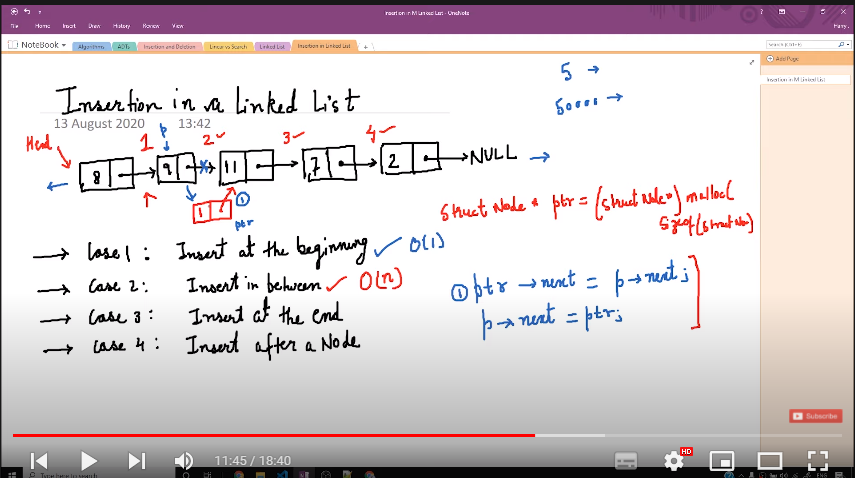 Insertion in M Linked List - OneNote
File Home Insert Draw History Review View
Harry
NoteBook
Algorithms ADTs Insertion and Deletion Linear vs Search Linked List Insertion in Linked List +
Search (Ctrl+E)
Add Page
Insertion in M Linked List
5 →
50000 →
Insertion in a Linked List
13 August 2020 13:42
Head 1 p 2 3 4
8 9 11 7 2 NULL
1 ①
ptr
struct Node * ptr = (struct Node*) malloc(
sizeof(struct No)
Case 1: Insert at the beginning O(1)
Case 2: Insert in between O(n)
Case 3: Insert at the end
Case 4: Insert after a Node
① ptr → next = p → next;
p → next = ptr;
Subscribe
11:45 / 18:40
HD
Type here to search
ENG